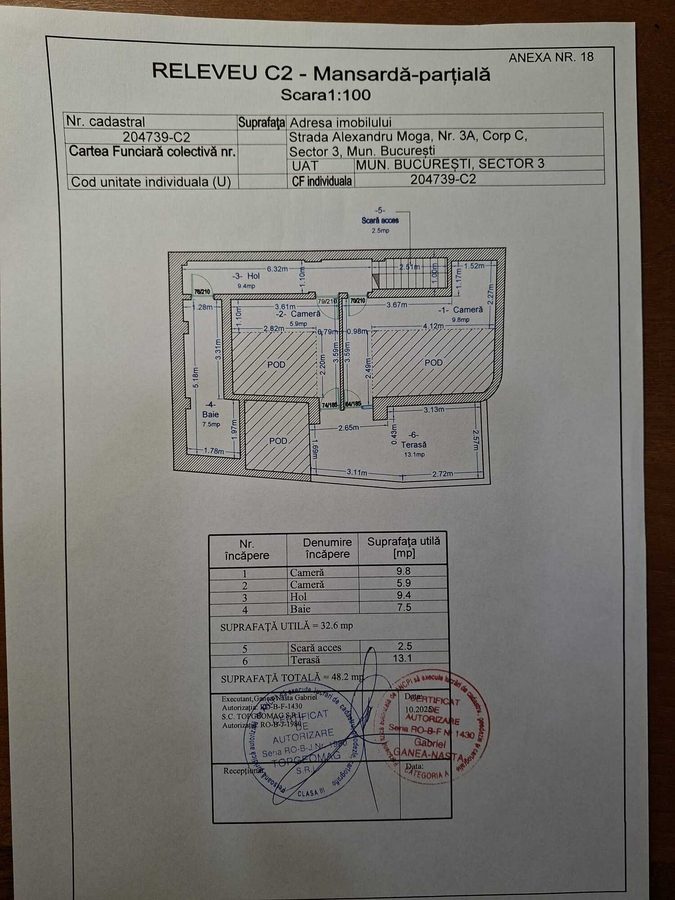 ANEXA NR. 18
RELEVEU C2 - Mansardă-parţială
Scara1:100
Nr. cadastral Suprafaţa Adresa imobilului
204739-C2 Strada Alexandru Moga, Nr. 3A, Corp C,
Cartea Funciară colectivă nr. Sector 3, Mun. Bucureşti
UAT MUN. BUCUREŞTI, SECTOR 3
Cod unitate individuala (U) CF individuala 204739-C2
-5-
Scară acces
2.5mp
6.32m
2.51m
1.00m
1.52m
-3- Hol
9.4mp
1.10m
1.17m
2.27m
76/210
79/210
70/210
1.28m
3.61m
3.67m
-1- Cameră
9.8mp
-2- Cameră
5.9mp
1.10m
2.82m
0.79m
0.98m
4.12m
3.31m
3.59m
3.59m
POD
2.20m
2.49m
POD
5.18m
74/185
64/185
-4-
Baie
7.5mp
3.13m
2.65m
0.43m
-6-
Terasă
13.1mp
2.57m
1.97m
POD
1.69m
1.78m
3.11m
2.72m
Nr. încăpere Denumire încăpere Suprafaţa utilă [mp]
1 Cameră 9.8
2 Cameră 5.9
3 Hol 9.4
4 Baie 7.5
SUPRAFAŢĂ UTILĂ = 32.6 mp
5 Scară acces 2.5
6 Terasă 13.1
SUPRAFAŢĂ TOTALĂ = 48.2 mp
Executant,Ganea-Nasta Gabriel Data:
Autorizaţia: RO-B-F-1430 10.2025
S.C. TOPGEOMAG S.R.L.
Autorizaţia: RO-B-J-1980
Recepţionat Data:
CERTIFICAT
DE
AUTORIZARE
Seria RO-B-J Nr. 1980
TOPGEOMAG
S.R.L.
CLASA III
CERTIFICAT
DE
AUTORIZARE
Seria RO-B-F Nr 1430
Gabriel
GANEA-NASTA
CATEGORIA A